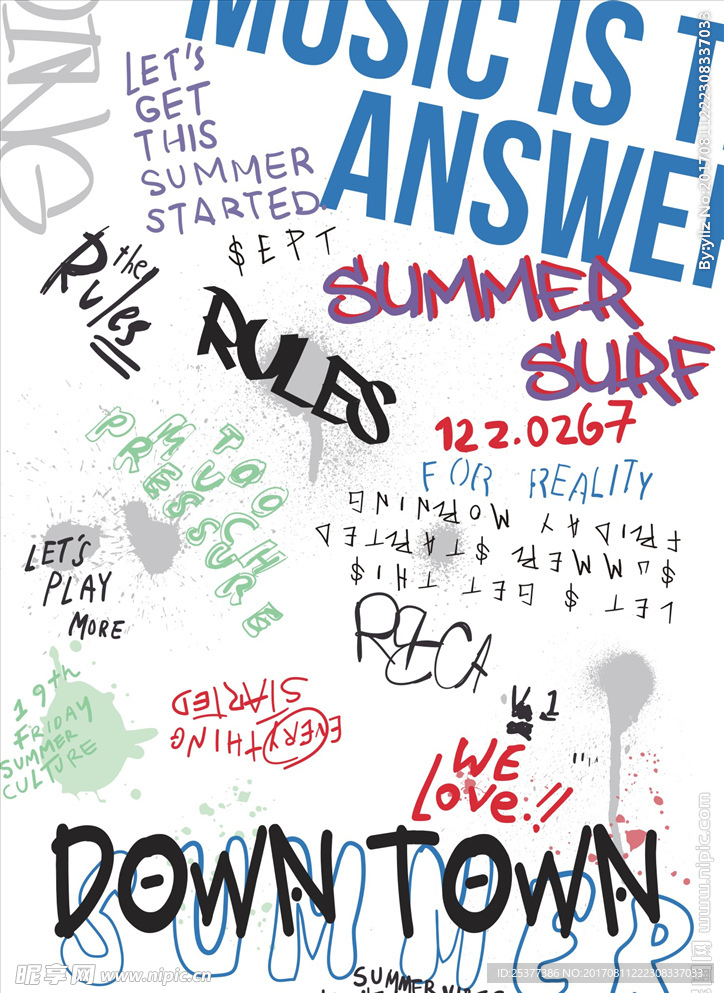 MUSIC IS T
ANSWE
LET'S
GET
THIS
SUMMER
STARTED.
$EPT
the
Rules
RULES
SUMMER
SURF
122.0267
FOR REALITY
TOO
MUCH
PRESSURE
LET $ GET THI$
$UMMER $TARTED
FRIDAY MORNING
LET'S
PLAY
MORE
19th
FRIDAY
SUMMER
CULTURE
EVERYTHING
STARTED
1
WE
Love.!!
DOWNTOWN
SUMMER
SUMMER
By:yliz No:20170811222308337033
昵享网 www.nipic.cn
ID:25377386 NO:20170811222308337033
www.nipic.com